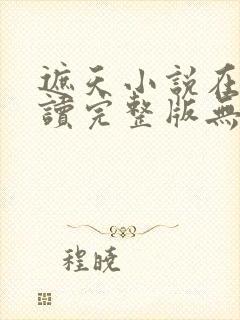 遮天小說在
讀完整版無
程曉